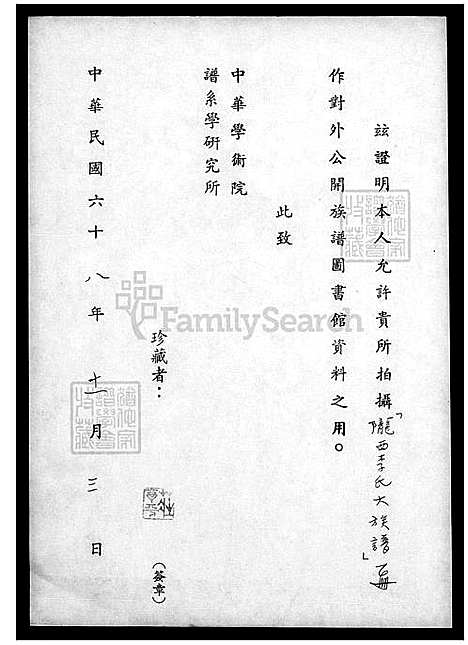 玆證明本人允許貴所拍攝「隴西李氏大族譜」一冊
作對外公開族譜圖書館資料之用。
此致
中華學術院
譜系學研究所
珍藏者：
(簽章)
中華民國六十八年十一月三日
FamilySearch